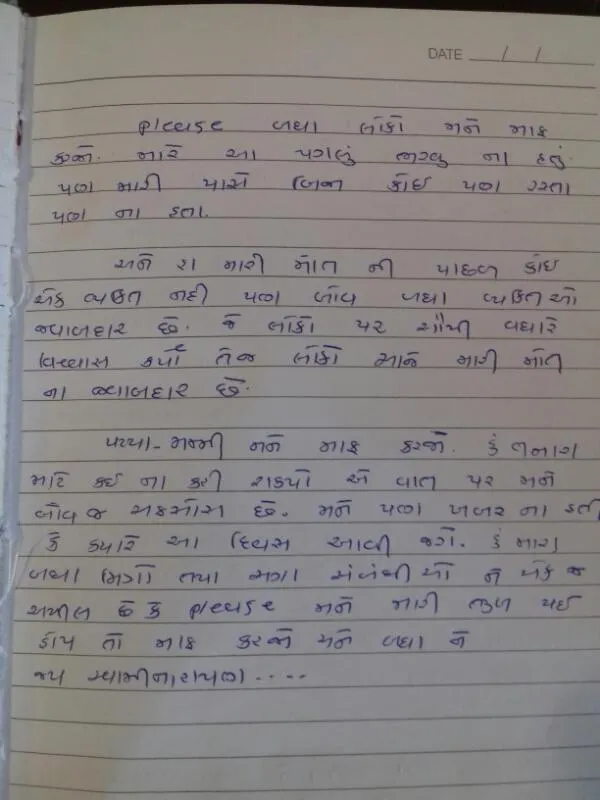 DATE / /
please બધા લોકો મને માફ
કરજો. મારે આ પગલું ભરવુ ના હતું.
પણ મારી પાસે બિજા કોઈ પણ રસ્તા
પણ ના હતા.
અને શ મારી મોત ની પાછળ કોઇ
એક વ્યકિત નહી પણ બોવ બધા વ્યકિતઓ
જ્વાબદાર છે. જે લોકો પર સૌથી વધારે
વિશ્વાસ કર્યો તેજ લોકો આજે મારી મોત
ના જ્વાબદાર છે.
પપ્પા-મમ્મી મને માફ કરજો. હું તમારા
માટે કઇ ના કરી શકયો એ વાત પર મને
બોવ જ અફસોસ છે. મને પણ ખબર ના હતી
કે કયારે આ દિવસ આવી જશે. હું મારા
બધા મિત્રો તથા સગા સંબંધીઓ ને એક જ
અપીલ છે કે please મને મારી ભુલ થઈ
હોય તો માફ કરજો અને બધા ને
જય સ્વામીનારાયણ.....